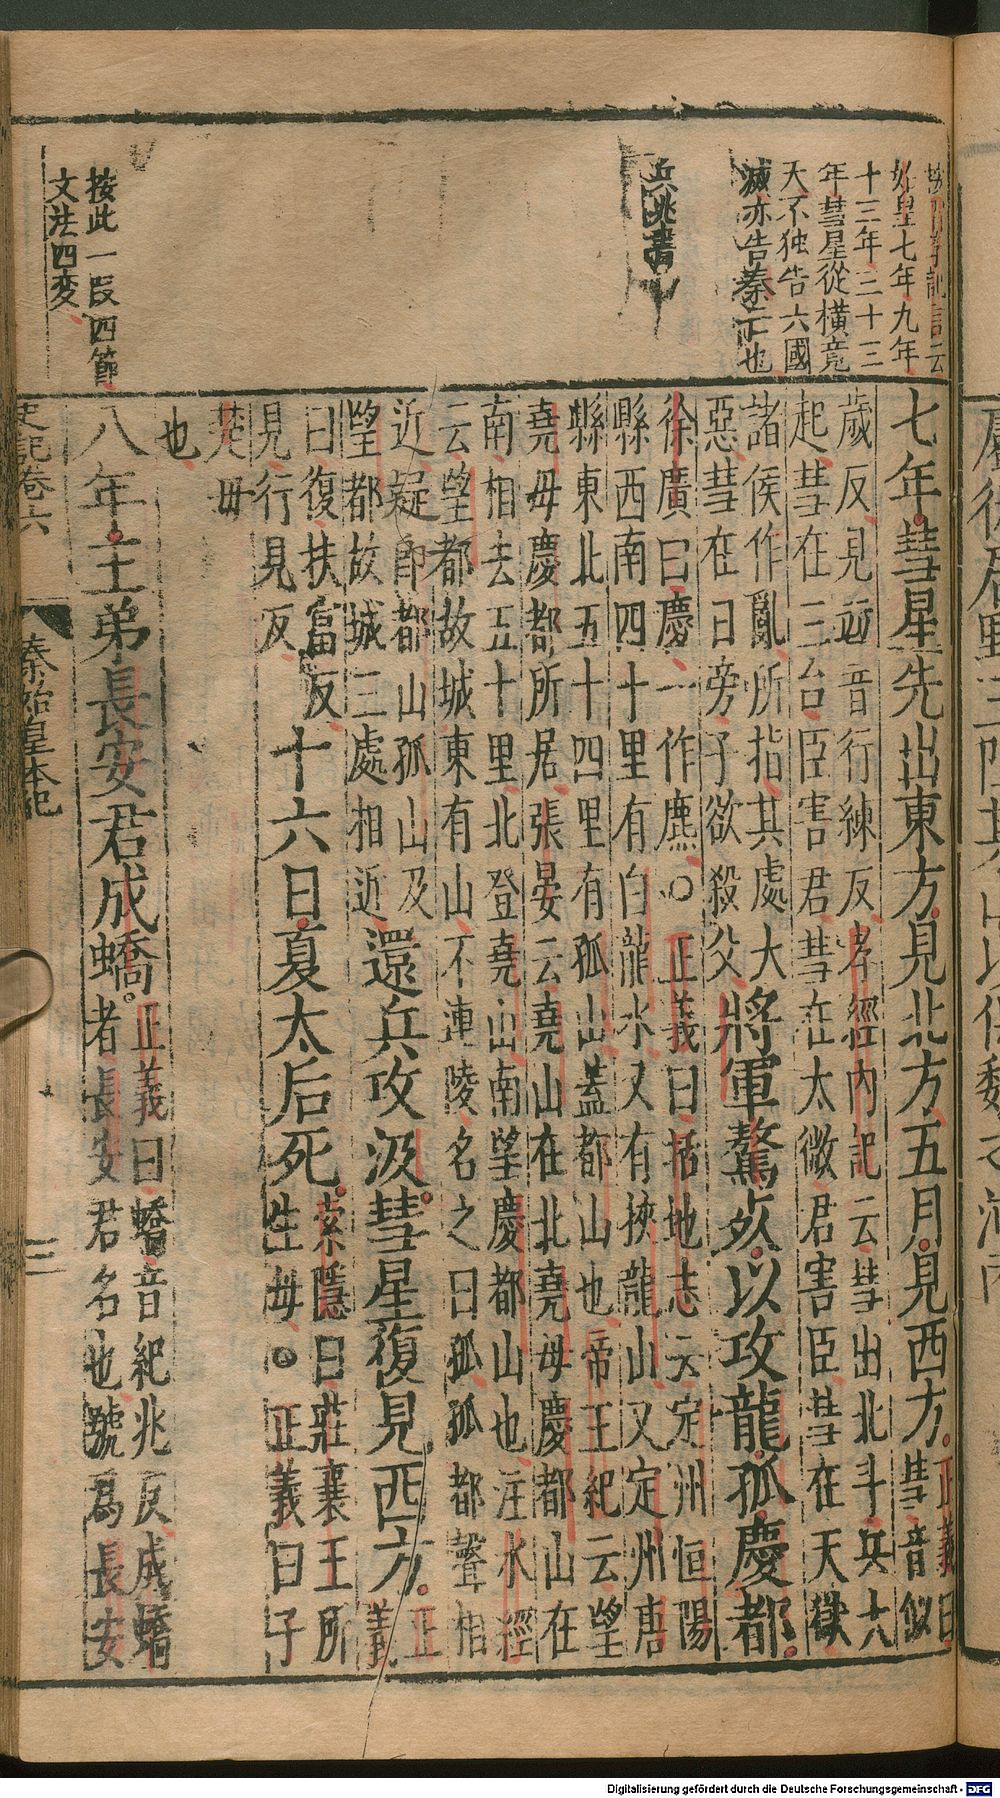 始皇七年九年
十三年三十三
年彗星從橫竟
天不独告六國
滅亦告秦亡也
兵兆書
按此一段四節
文法四変
七年彗星先出東方見北方五月見西方
正義曰
彗音似
歲反見並音行練反孝經內記云彗出北斗兵大
起彗在三台臣害君彗在太微君害臣彗在天獄
諸侯作亂所指其處大
惡彗在日旁子欲殺父
將軍驁死以攻龍孤慶都
徐廣曰慶一作麃○正義曰括地志云定州恒陽
縣西南四十里有白龍水又有挾龍山又定州唐
縣東北五十四里有孤山蓋都山也帝王紀云望
堯母慶都所居張晏云堯山在北堯母慶都山在
南相去五十里北登堯山南望慶都山也注水經
云望都故城東有山不連陵名之曰孤孤都聲相
近疑即都山孤山及
望都故城三處相近
還兵攻汲彗星復見西方
正
義
曰復扶富反
見行見反
十六日夏太后死
索隱曰莊襄王所
生母○正義曰子
楚母
也
八年王弟長安君成蟜
正義曰蟜音紀兆反成蟜
者長安君名也號為長安
史記卷六
秦始皇本紀
三
Digitalisierung gefördert durch die Deutsche Forschungsgemeinschaft - DFG